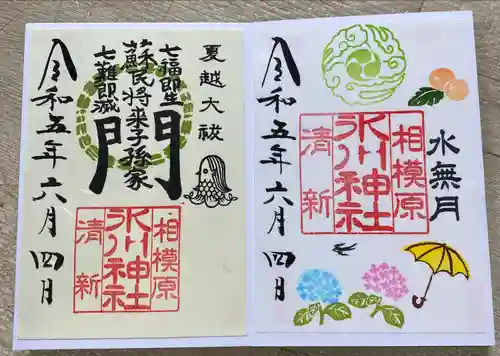 夏越大祓
七福即生
蘇民将来子孫家門
七難即滅
相模原
氷川神社
清新
令和五年六月四日
水無月
相模原
氷川神社
清新
令和五年六月四日